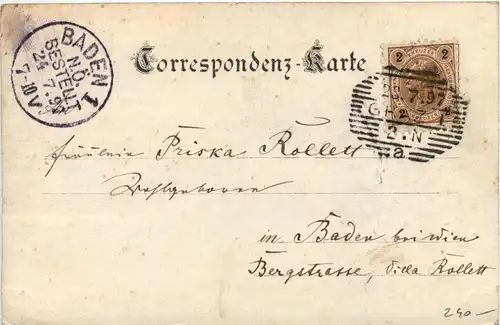 Correspondenz-Karte
BADEN 1
N.Ö.
BESTELLT
24 7.97
7-10 V
2 2
7.97
2. N
a
Fräulein Priska Rollett
Wohlgeboren
in Baden bei Wien
Bergstrasse, Villa Rollett
240-